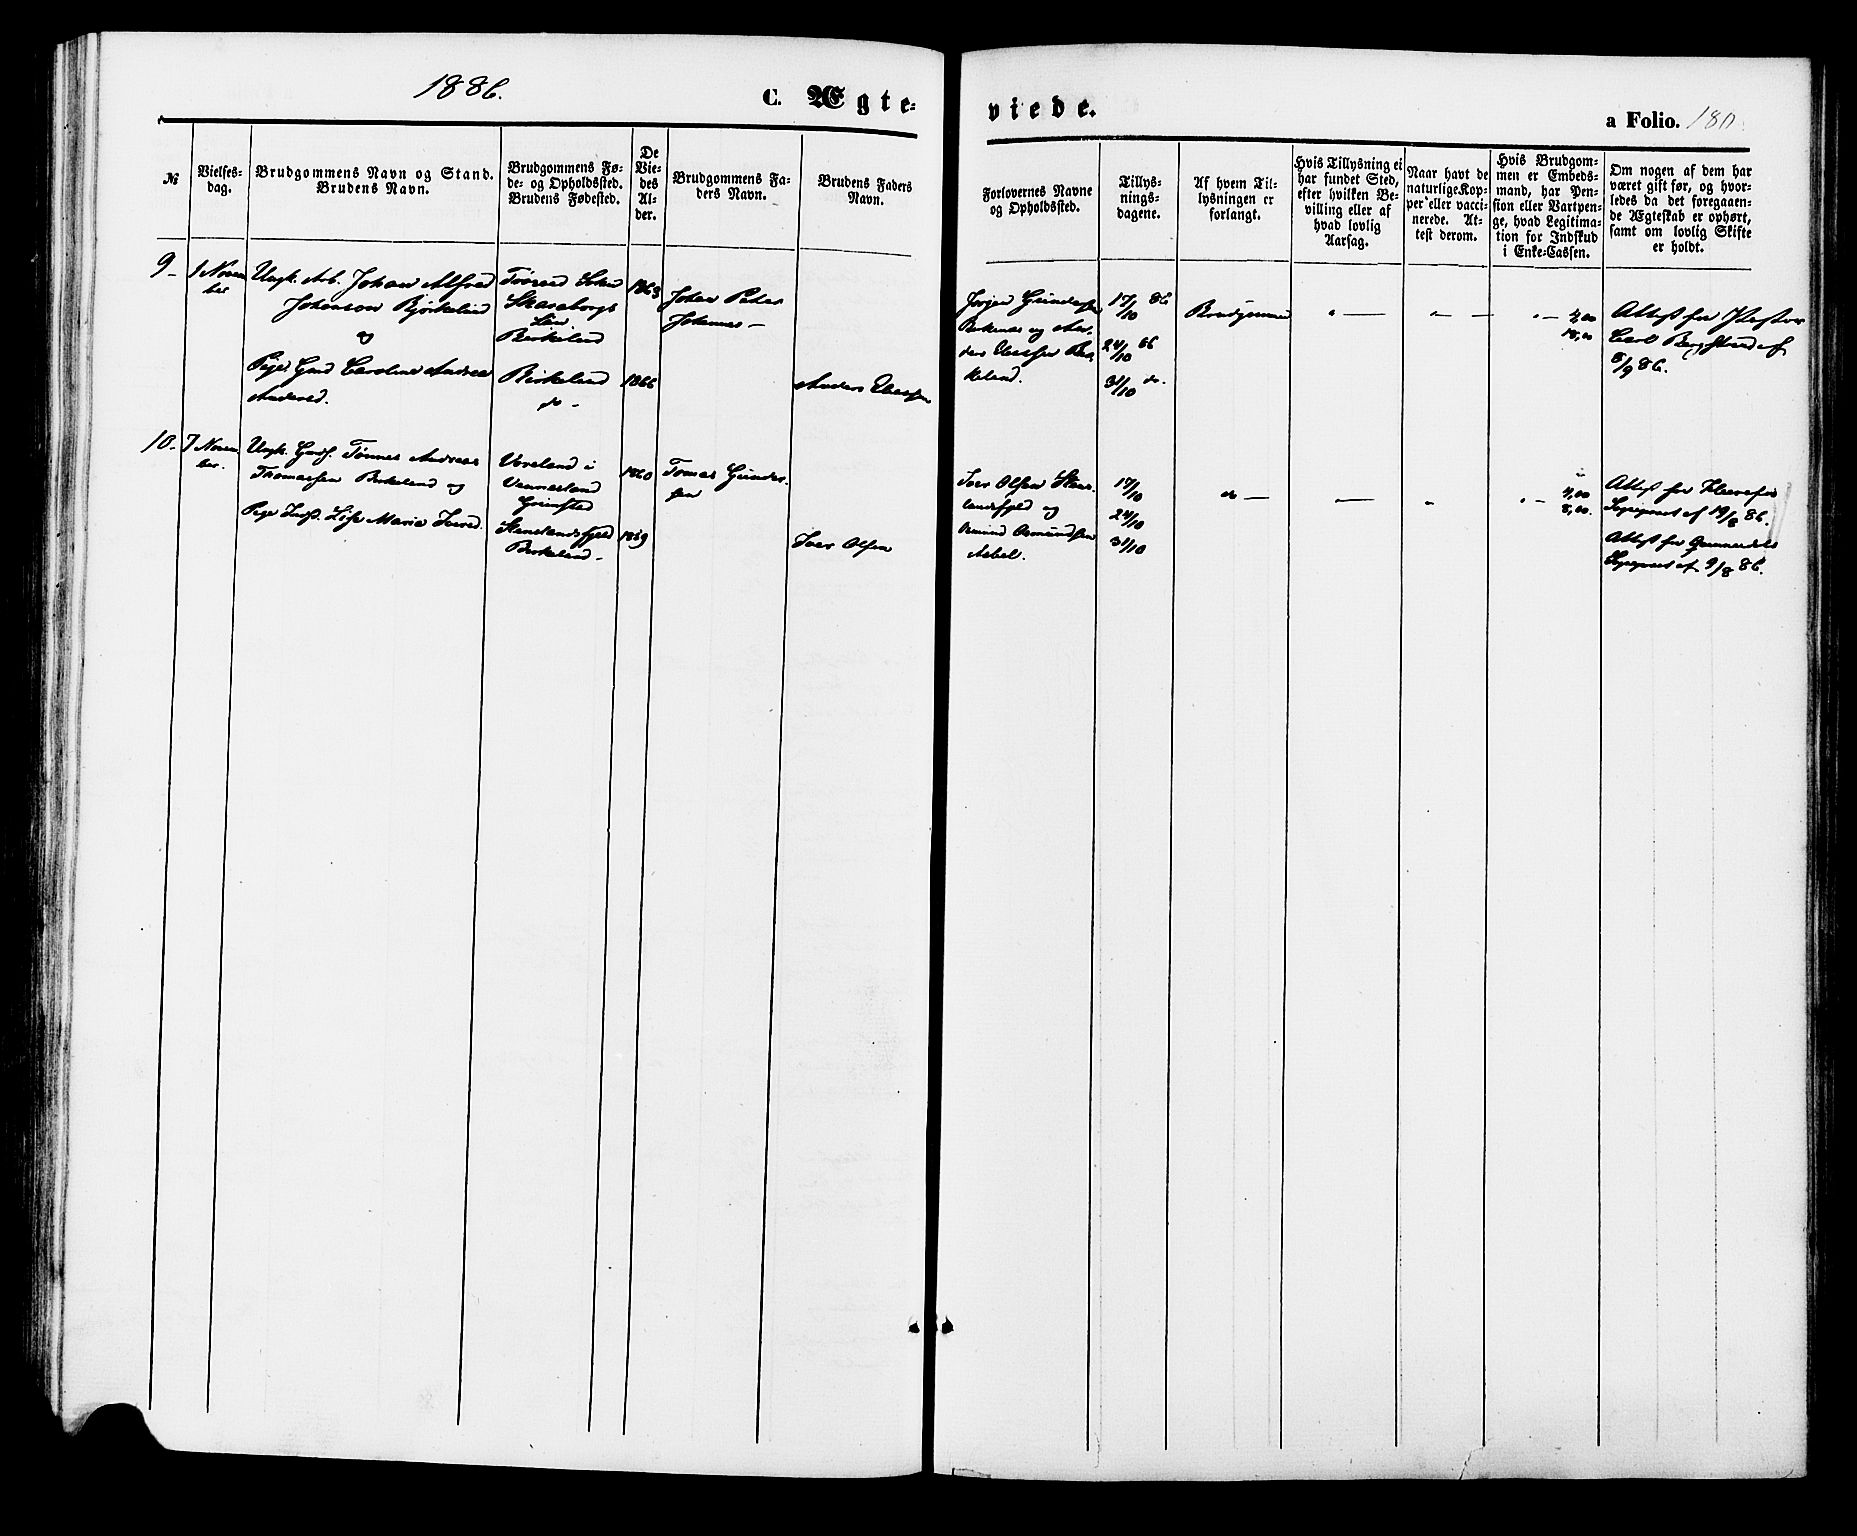 1886.
C. Ægte-
viede.
a Folio. 180.
№
Vielses-
dag.
Brudgommens Navn og Stand.
Brudens Navn.
Brudgommens Fø-
de- og Opholdssted.
Brudens Fødested.
De
Vie-
des
Al-
der.
Brudgommens Fa-
ders Navn.
Brudens Faders
Navn.
Forlovernes Navne
og Opholdssted.
Tillys-
nings-
dagene.
Af hvem Til-
lysningen er
forlangt.
Hvis Tillysning ei
har fundet Sted,
efter hvilken Be-
villing eller af
hvad lovlig
Aarsag.
Naar havt de
naturlige Kop-
per eller vacci-
nerede. At-
test derom.
Hvis Brudgom-
men er Embeds-
mand, har Pen-
sion eller Vartpen-
ge, hvad Legitima-
tion for Indskud
i Enke-Cassen.
Om nogen af dem har
været gift før, og hvor-
ledes da det foregaaen-
de Ægteskab er ophørt,
samt om lovlig Skifte
er holdt.
9-
1 Novem
ber
Ungk. Arb. Johan Alfred
Johanson Bjørkelid
og
Pige Caroline Andrea
Andersd.
Sokn
Skaraborgs
Län
Birkeland
Birkeland
do -
1863
1866
Johan Peter
Johannes-
Anders Ellefsen
Jørgen Gunders
og An-
ders Ellefsen Bir-
keland.
17/10 86
24/10 86
31/10 do.
Brudgommen
" —
" —
" — 4,00
18,00
Attest fra Pastor
Carl Bergstrand af
8/9 86.
10.
7 Novem
ber.
Ungk. Tønnes Andreas
Thomassen Birkeland og
Pige Maria Iversd.
i
Vennesland
Grimsted
Birkeland-
1860
1869
Tomas Gunder-
sen
Iver Olsen
Iver Olsen
landsfjeld og
Osmund Osmundsen
17/10
24/10
31/10
do —
—
"
" — 4,00
8,00.
Attest fra
af 19/8 86.
Attest fra
af 9/8 86.